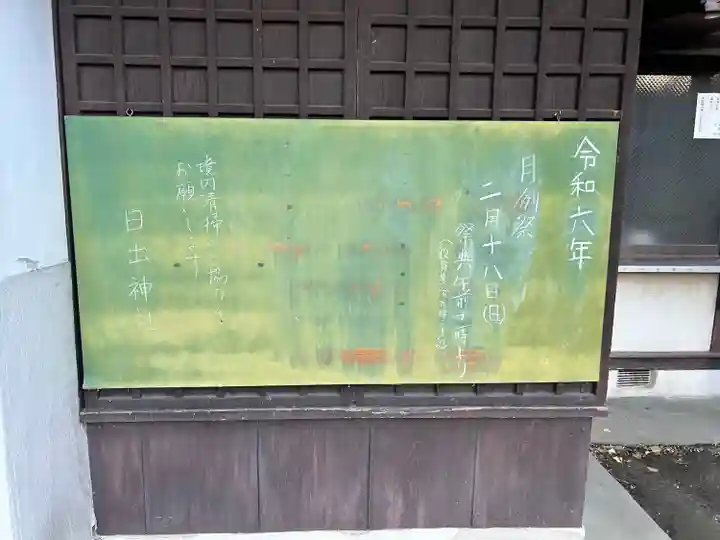 令和六年
月例祭
二月十八日(日)
祭典 午前十時より
境内清掃ご協力を
お願いします
日出神社